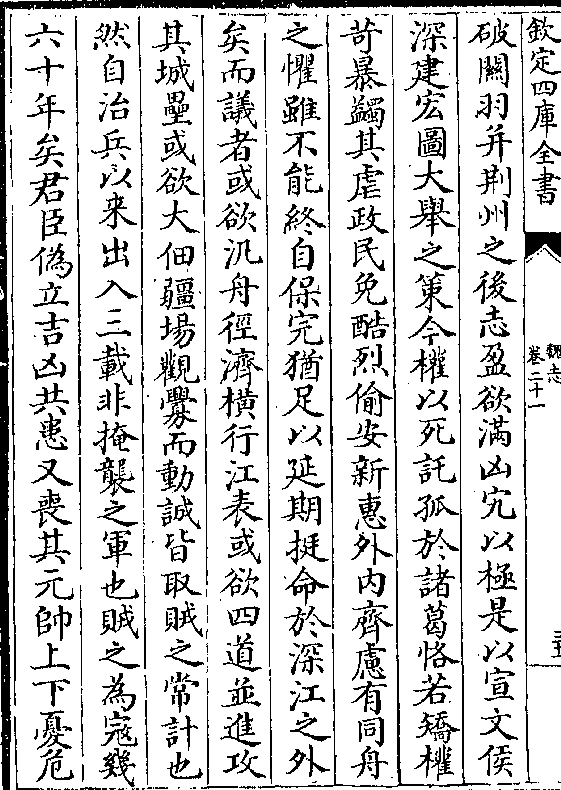 欽定四庫全書
魏志
卷二十一
破關羽并荆州之後志盈欲滿凶宄以極是以宣文侯
深建宏圖大舉之策今權以死託孤於諸葛恪若矯權
苛暴蠲其虐政民免酷烈偷安新惠外内齊慮有同舟
之懼雖不能終自保完猶足以延期挺命於深江之外
矣而議者或欲汎舟徑濟橫行江表或欲四道並進攻
其城壘或欲大佃疆場觀釁而動誠皆取賊之常計也
然自治兵以来出入三載非掩襲之軍也賊之為寇幾
六十年矣君臣偽立吉凶共患又喪其元帥上下憂危